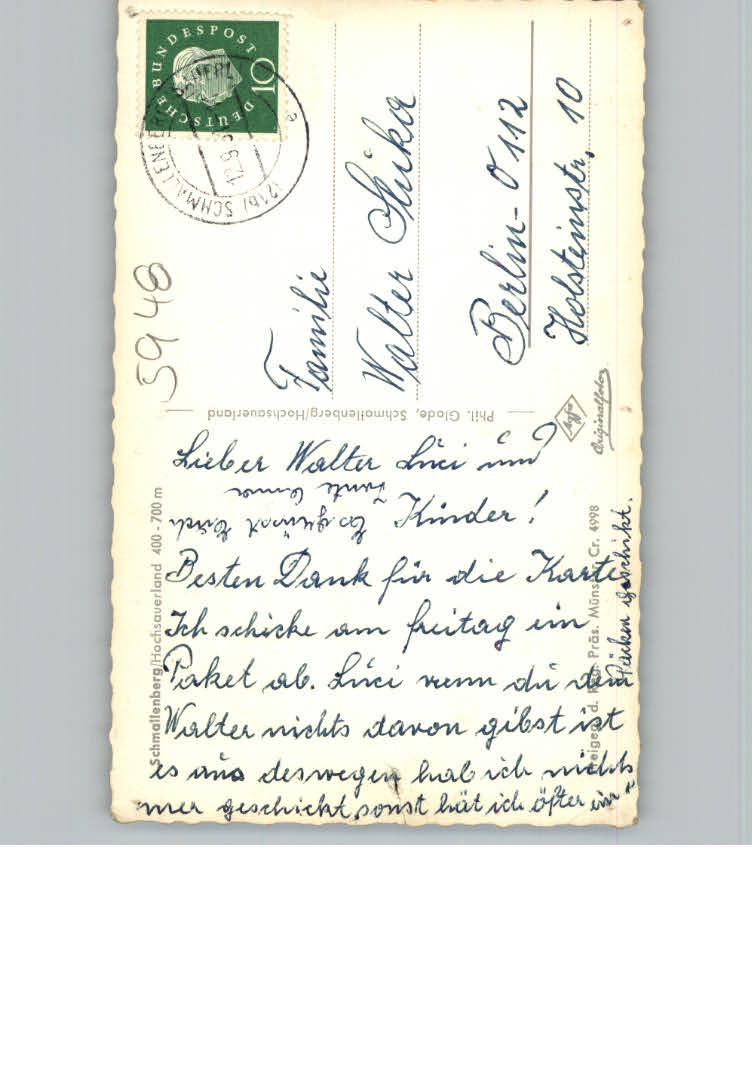 DEUTSCHE BUNDESPOST
10
(21b) SCHMALLENBERG
12.9.
a
5948
Familie
Walter
Berlin-O 112
Holsteinstr. 10
Phil. Glade, Schmallenberg/Hochsauerland
Agfa
Originalfoto
Schmallenberg/Hochsauerland 400 - 700 m
Lieber Walter Lüci und
Kinder!
Besten Dank für die Karte
Ich schicke am freitag ein
Paket ab. Lüci wenn du dem
Walter nichts davon gibst ist
es aus deswegen hab ich nichts
mer geschickt, sonst hät ich öfter ein
Päcken geschikt.
Es grüsst Euch
Tante
d. Reg. Präs. Münster Cr. 4998